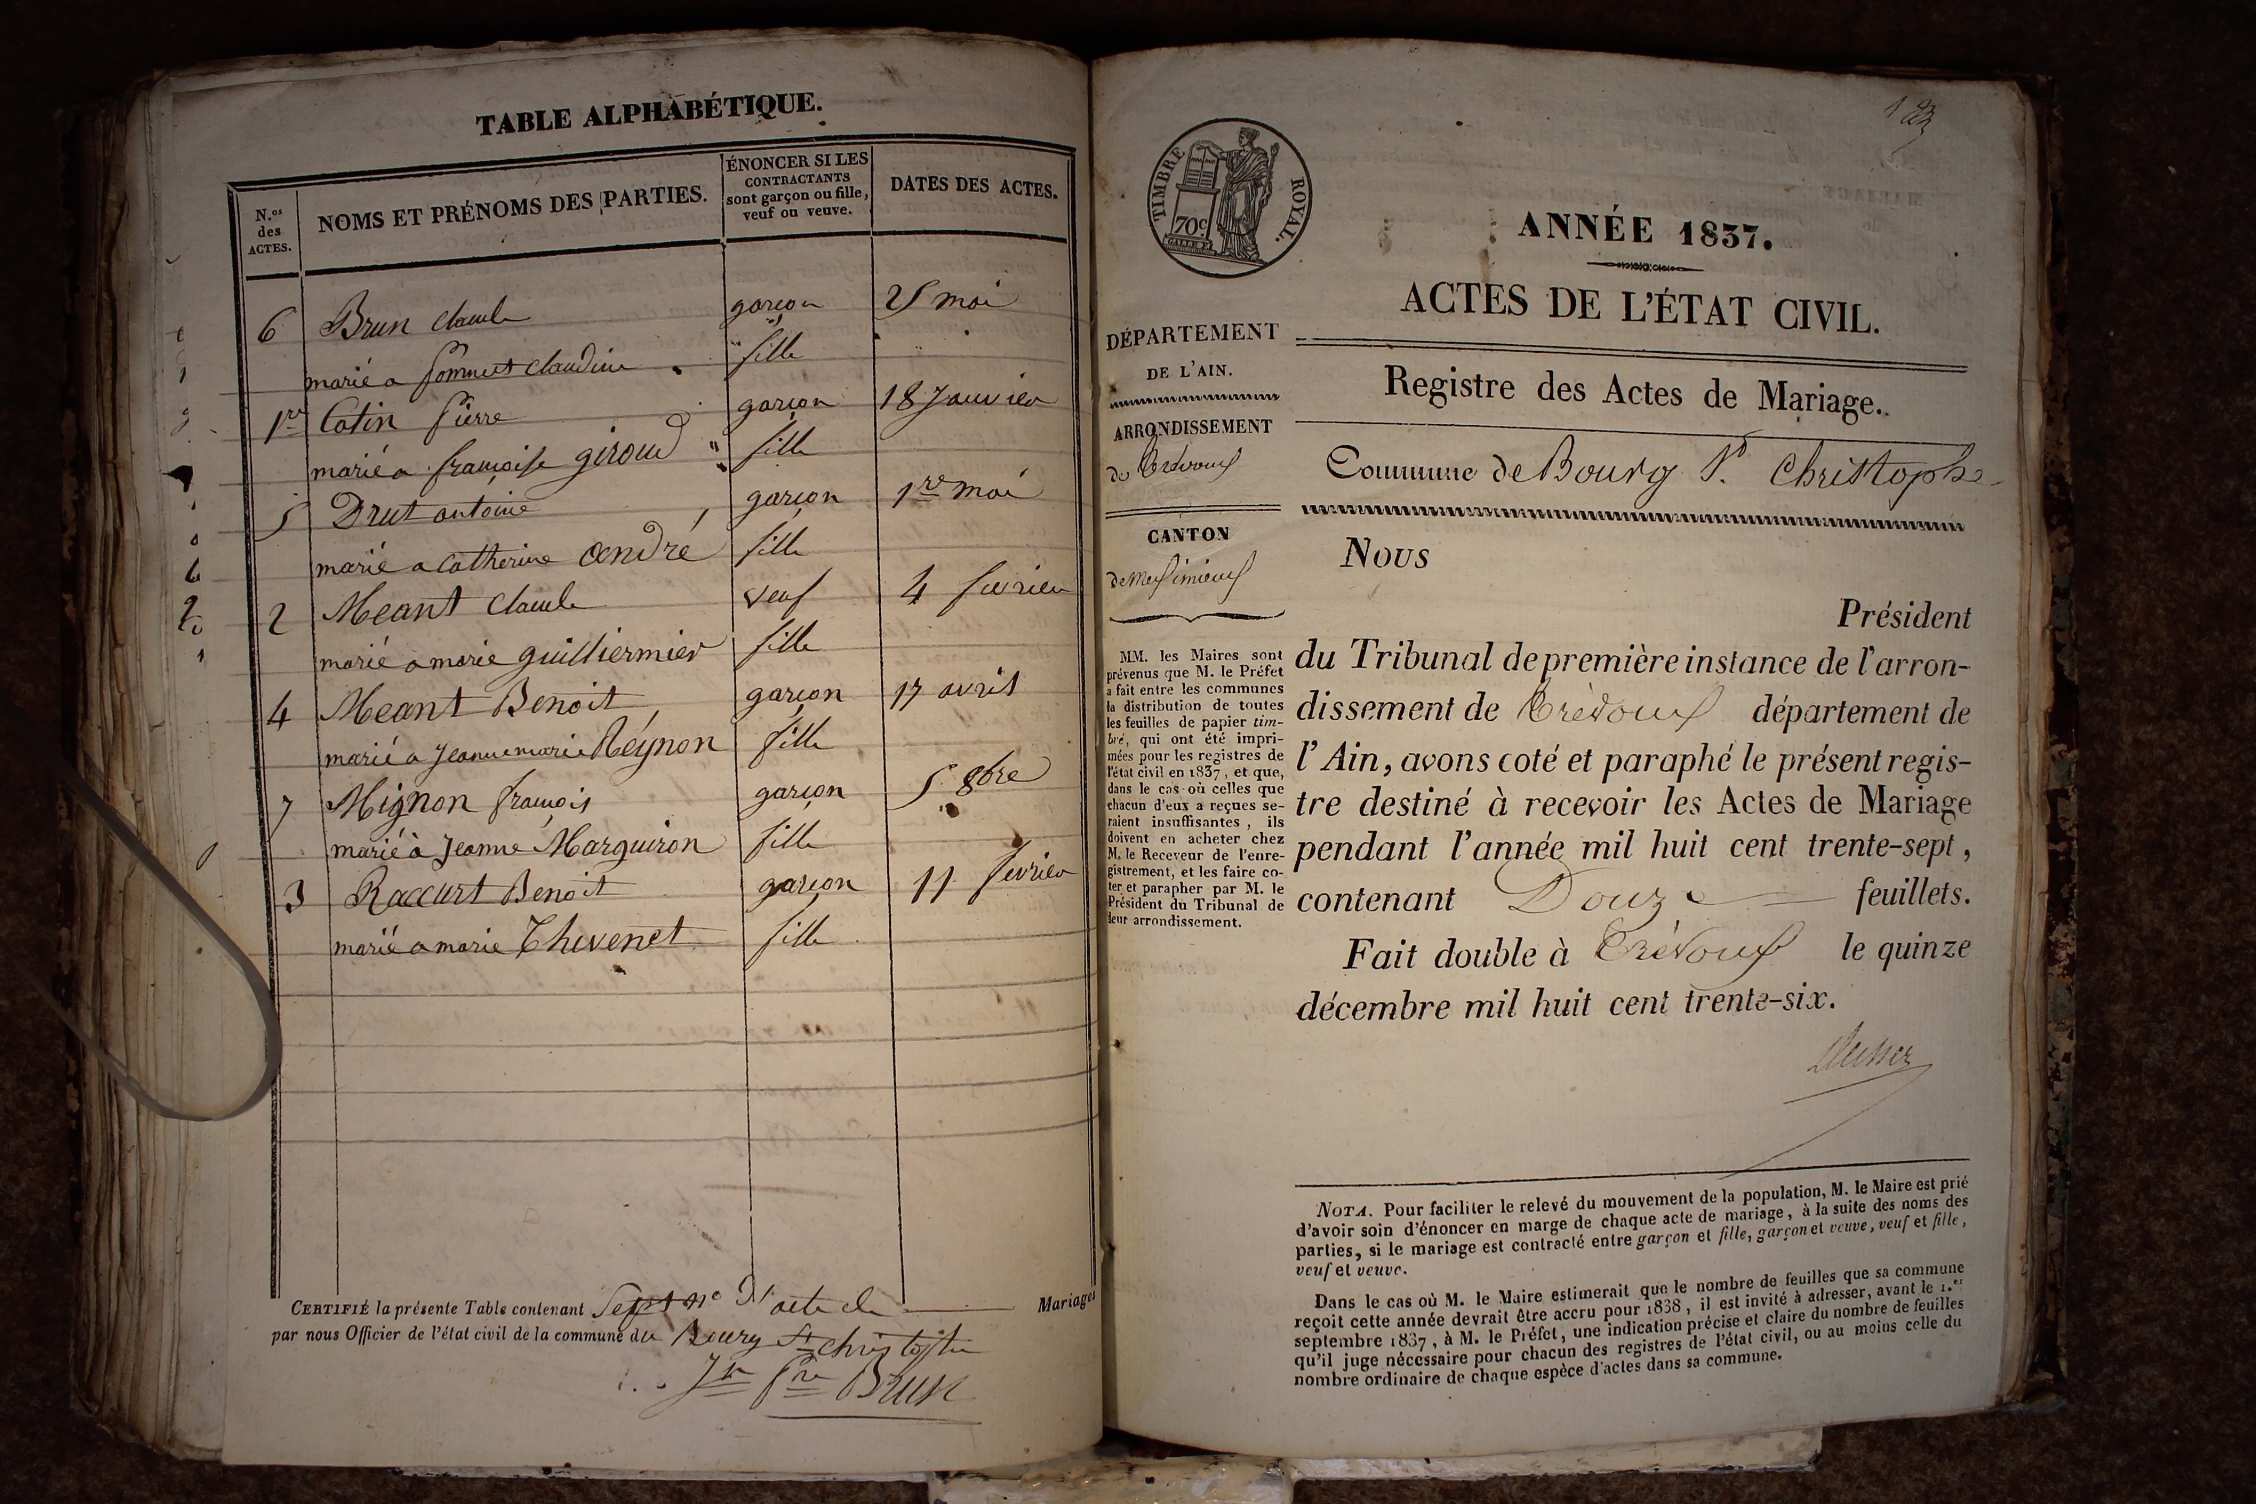 TABLE ALPHABÉTIQUE.
N.os des ACTES.
NOMS ET PRÉNOMS DES PARTIES.
ÉNONCER SI LES
CONTRACTANTS
sont garçon ou fille,
veuf ou veuve.
DATES DES ACTES.
6 Brun Claude garçon 25 mai
marié a Pommet Claudine fille
1re Cotin Pierre garçon 18 Janvier
marié a françoise giroud fille
5 Drut antoine garçon 1re mai
marié a Catherine André fille
2 Meant Claude Veuf 4 fevrier
marié a marie guilliermier fille
4 Meant Benoit garçon 17 avril
marié a Jeanne marie Réynon fille
7 Mignon françois garçon 5 8bre
marié à Jeanne Marguiron fille
3 Raccurt Benoit garçon 11 fevrier
marié a marie Thevenet fille
CERTIFIÉ la présente Table contenant Sept acte de Mariages
par nous Officier de l'état civil de la commune de Bourg St christophe
Brun
TIMBRE ROYAL.
70c
ANNÉE 1837.
ACTES DE L'ÉTAT CIVIL.
DÉPARTEMENT
DE L'AIN.
ARRONDISSEMENT
de Trévoux
CANTON
de Meximieux
MM. les Maires sont
prévenus que M. le Préfet
a fait entre les communes
la distribution de toutes
les feuilles de papier tim-
bré, qui ont été impri-
mées pour les registres de
l'état civil en 1837, et que,
dans le cas où celles que
chacun d'eux a reçues se-
raient insuffisantes, ils
doivent en acheter chez
M. le Receveur de l'enre-
gistrement, et les faire co-
ter et parapher par M. le
Président du Tribunal de
leur arrondissement.
Registre des Actes de Mariage.
Commune de Bourg St. Christophe
Nous
Président
du Tribunal de première instance de l'arron-
dissement de Trévoux département de
l'Ain, avons coté et paraphé le présent regis-
tre destiné à recevoir les Actes de Mariage
pendant l'année mil huit cent trente-sept,
contenant Douze feuillets.
Fait double à Trévoux le quinze
décembre mil huit cent trente-six.
NOTA. Pour faciliter le relevé du mouvement de la population, M. le Maire est prié
d'avoir soin d'énoncer en marge de chaque acte de mariage, à la suite des noms des
parties, si le mariage est contracté entre garçon et fille, garçon et veuve, veuf et fille,
veuf et veuve.
Dans le cas où M. le Maire estimerait que le nombre de feuilles que sa commune
reçoit cette année devrait être accru pour 1838, il est invité à adresser, avant le 1.er
septembre 1837, à M. le Préfet, une indication précise et claire du nombre de feuilles
qu'il juge nécessaire pour chacun des registres de l'état civil, ou au moins celle du
nombre ordinaire de chaque espèce d'actes dans sa commune.